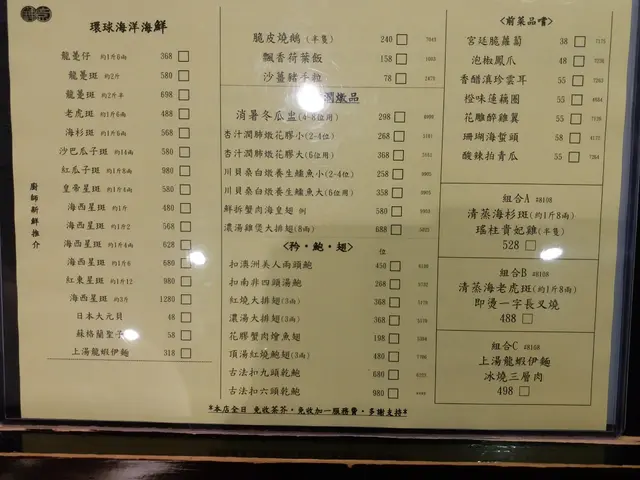 環球海洋海鮮
龍躉仔 約1斤6兩 368
龍躉斑 約2斤 580
龍躉斑 約2斤半 698
老虎斑 約1斤6兩 488
海杉斑 約1斤6兩 568
沙巴瓜子斑 約14兩 580
紅瓜子斑 約1斤8兩 980
皇帝星斑 約1斤4兩 580
海西星斑 約1斤 480
海西星斑 約1斤2 568
海西星斑 約1斤4兩 628
海西星斑 約1斤6 680
紅東星斑 約1斤12 980
海西星斑 約3斤 1280
日本大元貝 48
蘇格蘭聖子 58
上湯龍蝦伊麵 318
廚師新鮮推介
脆皮燒鵝(半隻) 240
飄香荷葉飯 158
沙薑豬手粒 78
潤燉品
消暑冬瓜盅(4-8位用) 298
杏汁潤肺燉花膠小(2-4位) 268
杏汁潤肺燉花膠大(6位用) 368
川貝桑白燉養生鱷魚小(2-4位) 258
川貝桑白燉養生鱷魚大(6位用) 358
鮮拆蟹肉海皇翅 例 580
濃湯雞煲大排翅(8兩) 688
<矜·鮑·翅> 位
扣澳洲美人兩頭鮑 450
扣南非四頭湯鮑 268
紅燒大排翅(3兩) 368
濃湯大排翅(3兩) 368
花膠蟹肉燴魚翅 198
頂湯紅燒鮑翅(3兩) 480
古法扣九頭乾鮑 680
古法扣六頭乾鮑 980
<前菜品嚐>
宮廷脆蘿蔔 38 7175
泡椒鳳爪 48
香醋滇珍雲耳 55
橙味蓮藕園 55
花雕醉雞翼 55
珊瑚海蜇頭 58
酸辣拍青瓜 55
組合A #8108
清蒸海杉斑(約1斤8兩)
瑤柱貴妃雞(半隻)
528
組合B #8108
清蒸海老虎斑(約1斤8兩)
即燙一字長叉燒
488
組合C #8108
上湯龍蝦伊麵
冰燒三層肉
498
*本店全日 免收茶芥·免收加一服務費·多謝支持*